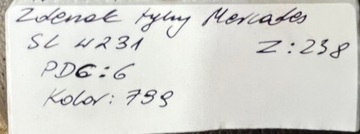 Zderzak tylny Mercedes
SL W231 Z: 238
PDC: 6
Kolor: 799